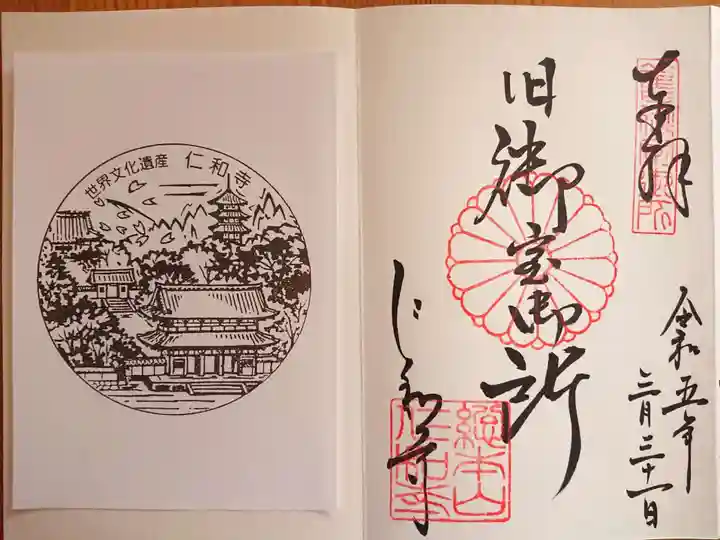 世界文化遺産 仁和寺
奉拝
令和五年
三月三十一日
旧御室御所
仁和寺
総本山
仁和寺